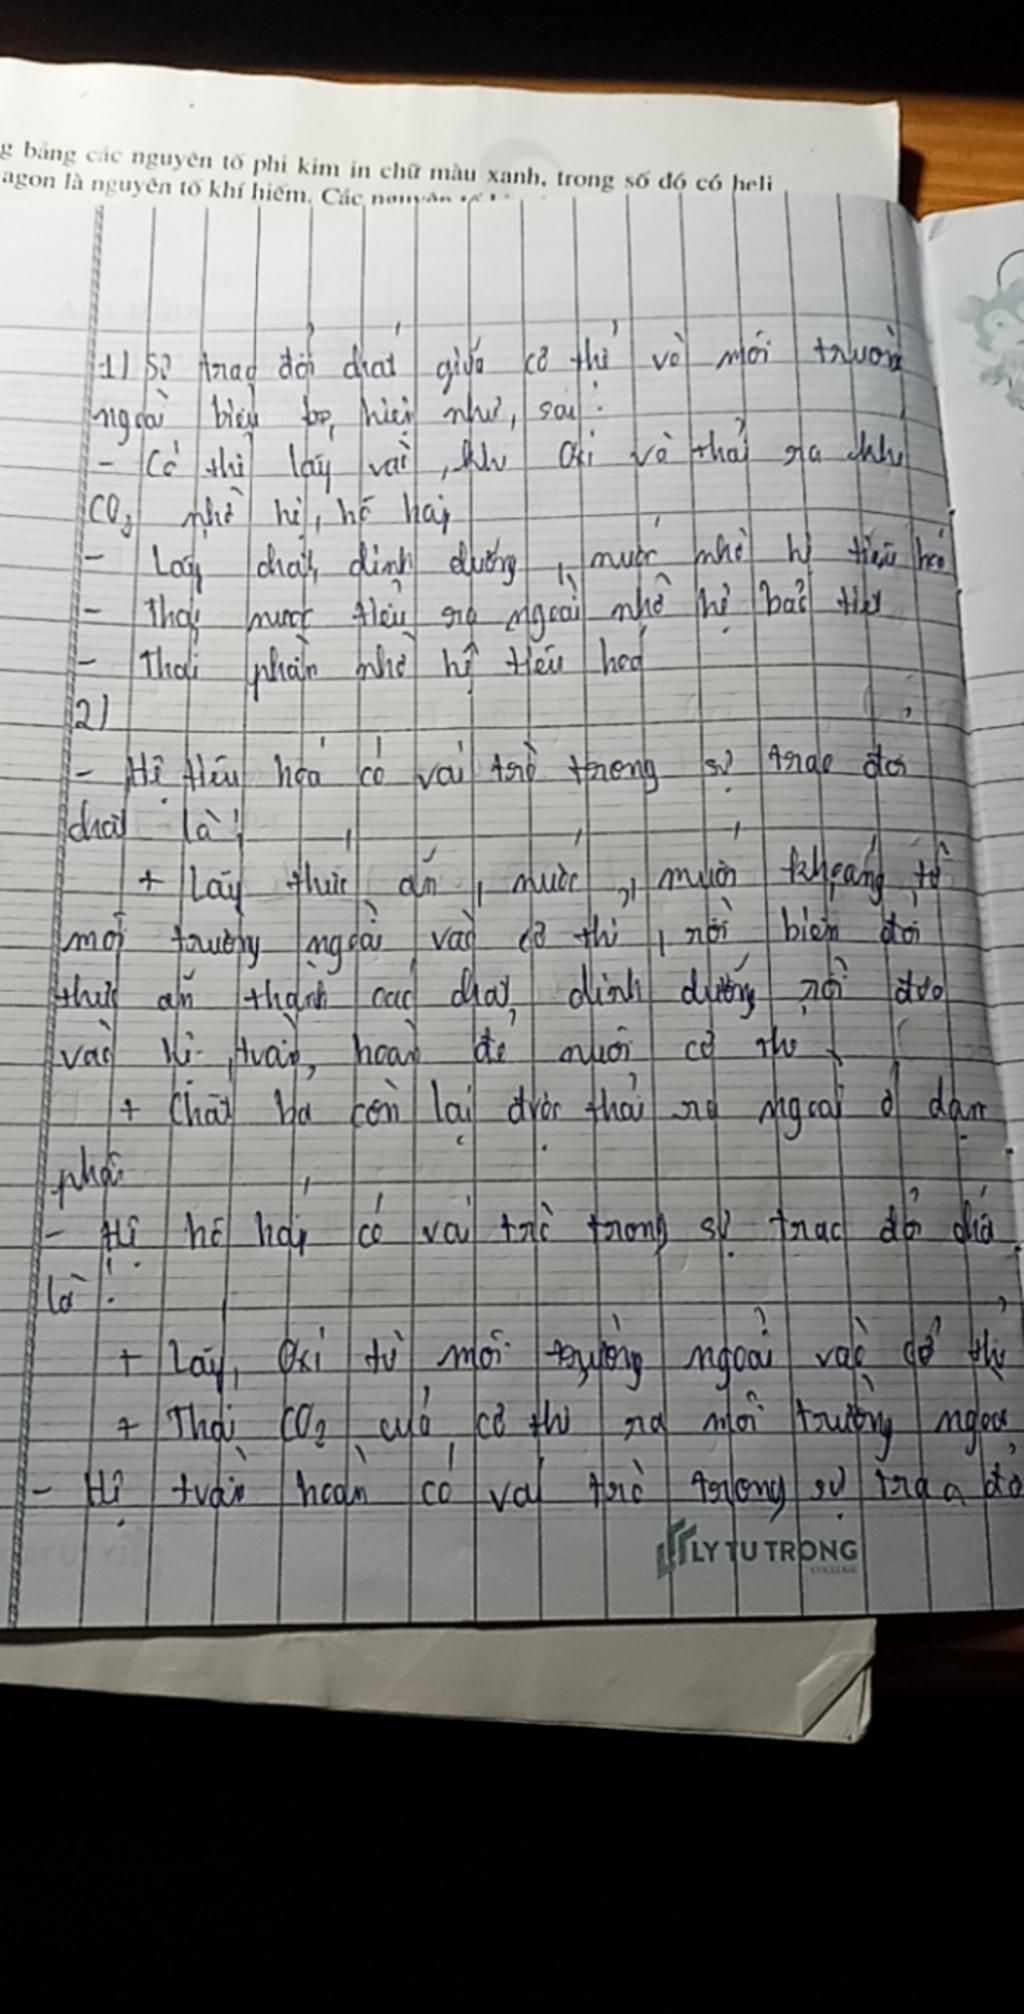 g bảng các nguyên tố phi kim in chữ màu xanh, trong số đó có heli
agon là nguyên tố khí hiếm. Các nguyên tố
1) Sự trao đổi chất giữa cơ thể và môi trường
ngoài biểu hiện như sau:
- Cơ thể lấy vào khí oxi và thải ra khí
CO2 nhờ hệ hô hấp
- Lấy chất dinh dưỡng, nước nhờ hệ tiêu hóa
- Thải nước tiểu ra ngoài nhờ hệ bài tiết
- Thải phân nhờ hệ tiêu hoá
2)
- Hệ tiêu hóa có vai trò trong sự trao đổi
chất là:
+ Lấy thức ăn, nước, muối khoáng từ
môi trường ngoài vào cơ thể, rồi biến đổi
thức ăn thành các chất dinh dưỡng rồi đưa
vào hệ tuần hoàn để nuôi cơ thể
+ Chất bã còn lại được thải ra ngoài ở dạng
phân
- Hệ hô hấp có vai trò trong sự trao đổi chất
là:
+ Lấy Oxi từ môi trường ngoài vào cơ thể
+ Thải CO2 của cơ thể ra môi trường ngoài
- Hệ tuần hoàn có vai trò trong sự trao đổ
LY TU TRONG
COLLEGE